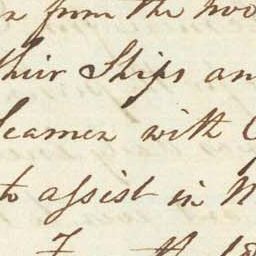 from the
their Ships an
Seamen with
to assist in